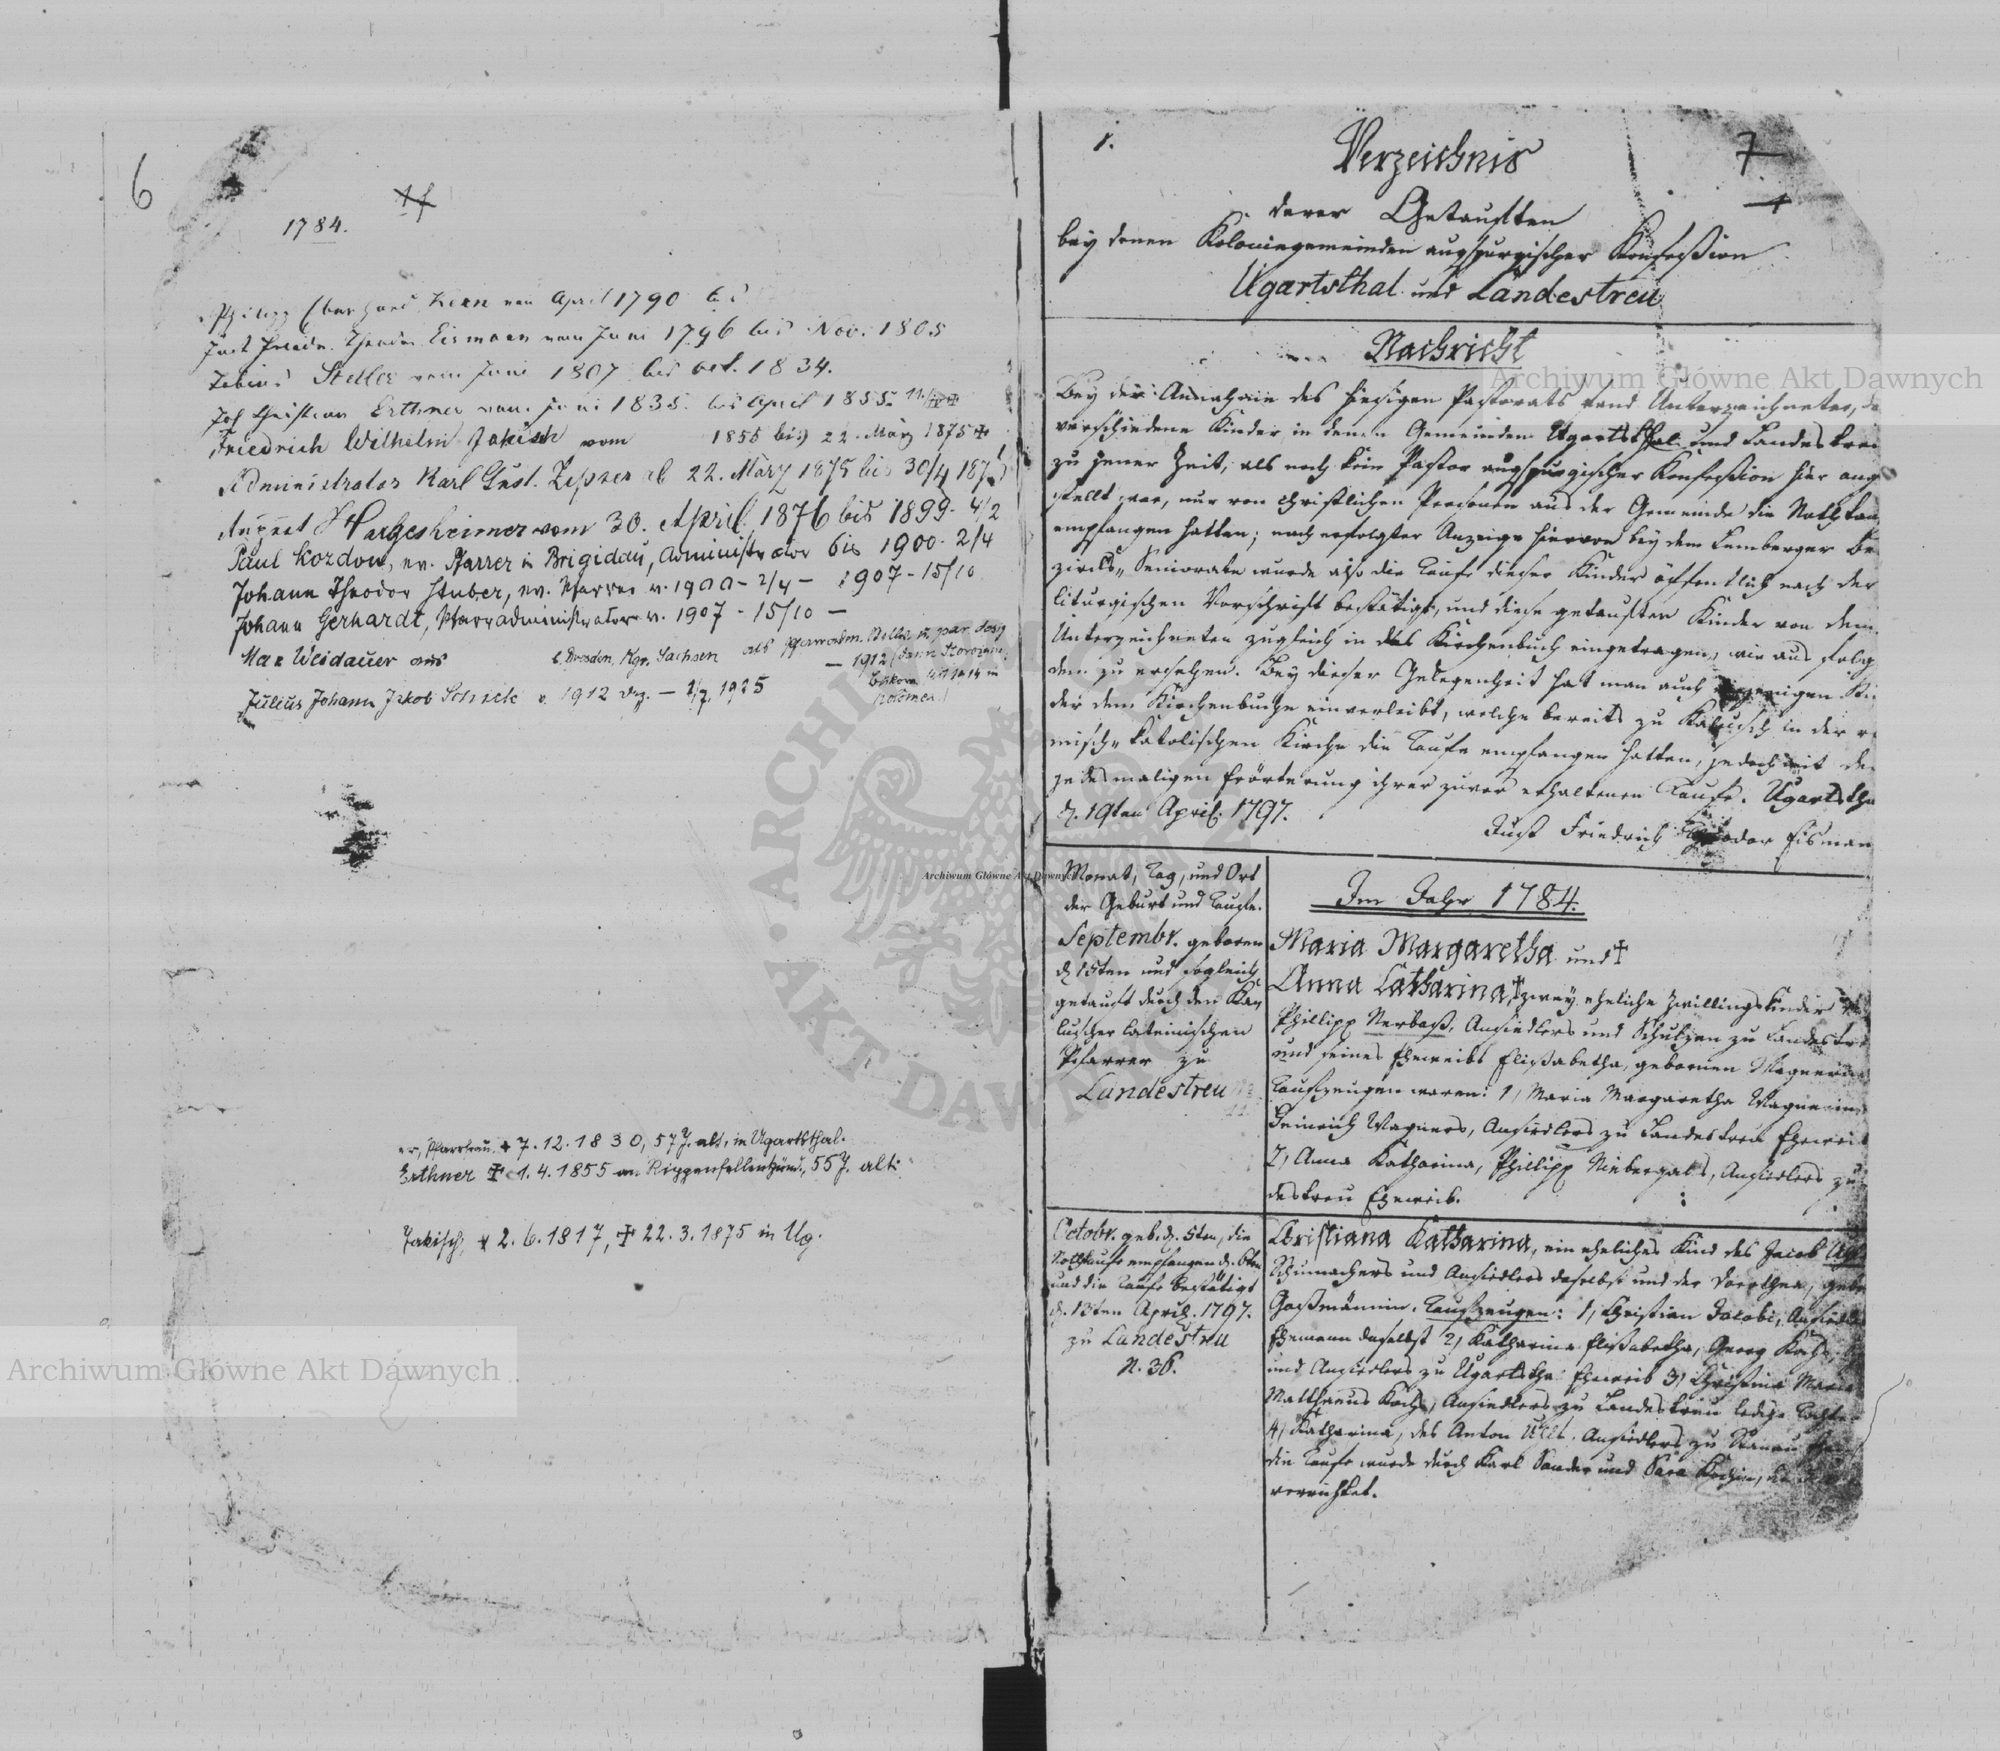 6
1784.
Philipp Eberhard Kern von April 1790 bis
Just Friedr. Theodor Eismann vom Juni 1796 bis Nov. 1805
Tobias Steller vom Juni 1807 bis oct. 1834.
Joh Christian Erthner vom Juni 1835. bis April 1855.
Friedrich Wilhelm Jakisch vom 1855 bis 22. März 1875 ✝
Administrator Karl Gust. Zipser ab 22. März 1875 bis 30/4 187
August Hargesheimer vom 30. April 1876 bis 1899. 4/2
Paul Kozdon, ev. Pfarrer in Brigidau, Administrator bis 1900. 2/4
Johann Theodor Stuber, ev. Pfarrer v. 1900 - 2/4 - 1907 - 15/10
Johann Gerhardt, Pfarradministrator v. 1907 - 15/10 -
Max Weidauer aus Dresden, Kgr. Sachsen als Pfarradm.
- 1912
Julius Johann Jakob Schick v. 1912 - 1925
Pfarrfrau, ✝ 7.12.1830, 57 J. alt, in Ugartsthal.
Erthner ✝ 1.4.1855 an Rippenfellentzünd., 55 J. alt.
Jakisch, * 2.6.1817, ✝ 22.3.1875 in Ug.
1.
7
1
Verzeichnis
derer Getauften
bey denen Koloniegemeinden augspurgischer Konfeßion
Ugartsthal und Landestreu
Nachricht
Bey der Annahme des hiesigen Pastorats fand Unterzeichneter,
verschiedene Kinder in denen Gemeinden Ugartsthal und Landestreu
zu jener Zeit, als noch kein Pastor augspurgischer Konfeßion hier ang
stellt war, nur von christlichen Personen aus der Gemeinde die Nothtau
empfangen hatten; nach erfolgter Anzeige hiervon bey dem Lemberger Be
zircks-Seniorate wurde also die Taufe dieser Kinder öffentlich nach der
liturgischen Vorschrift bestätigt, und diese getauften Kinder von dem
Unterzeichneten zugleich in das Kirchenbuch eingetragen, wie aus folg
dem zu ersehen. Bey dieser Gelegenheit hat man auch diejenigen Ki
der dem Kirchenbuche einverleibt, welche bereits zu Kalusch in der r
misch-katolischen Kirche die Taufe empfangen hatten, jedoch mit de
jedesmaligen Erörterung ihrer zuvor erhaltenen Taufe. Ugartstha
d. 19ten April. 1797.
Just Friedrich Theodor Eisman
Monat, Tag, und Ort
der Geburt und Taufe.
Septembr. geboren
d. 15ten und sogleich
getauft durch den Ka
luscher lateinischen
Pfarrer zu
Landestreu
Im Jahr 1784.
Maria Margaretha und ✝
Anna Catharina, ✝ zwey eheliche Zwillingskinder
Phillipp Nerbaß, Ansiedlers und Schulzen zu Landestre
und seines Eheweibs Elisabetha, gebornen Wagnerin
Taufzeugen waren: 1, Maria Margaretha Wagnerin,
Heinrich Wagners, Ansiedlers zu Landestreu Eheweib
2, Anna Katharina, Phillipp Niebergals, Ansiedlers zu
destreu Eheweib.
Octobr. geb. d. 5ten, die
Nothtaufe empfangen d. 6ten
und die Taufe bestätigt
d. 13ten April. 1797.
zu Landestreu
N. 36.
Christiana Katharina, ein eheliches Kind des Jacob
Schumachers und Ansiedlers daselbst und der Dorothea, gebo
Gaßmännin. Taufzeugen: 1, Christian Jacobi, Ansiedl
Ehemann daselbst 2, Katharina Elisabetha, Georg Kochs,
und Ansiedlers zu Ugartstha Eheweib 3, Christina Maria
Matthaeus Kochs, Ansiedlers zu Landestreu ledige Tochte
4, Katharina, des Anton Ansiedlers zu
die Taufe wurde durch Karl Sander und Sara Kochin,
verrichtet.
Archiwum Główne Akt Dawnych
Archiwum Główne Akt Dawnych
Archiwum Główne Akt Dawnych
ARCHIWUM GŁÓWNE AKT DAWNYCH